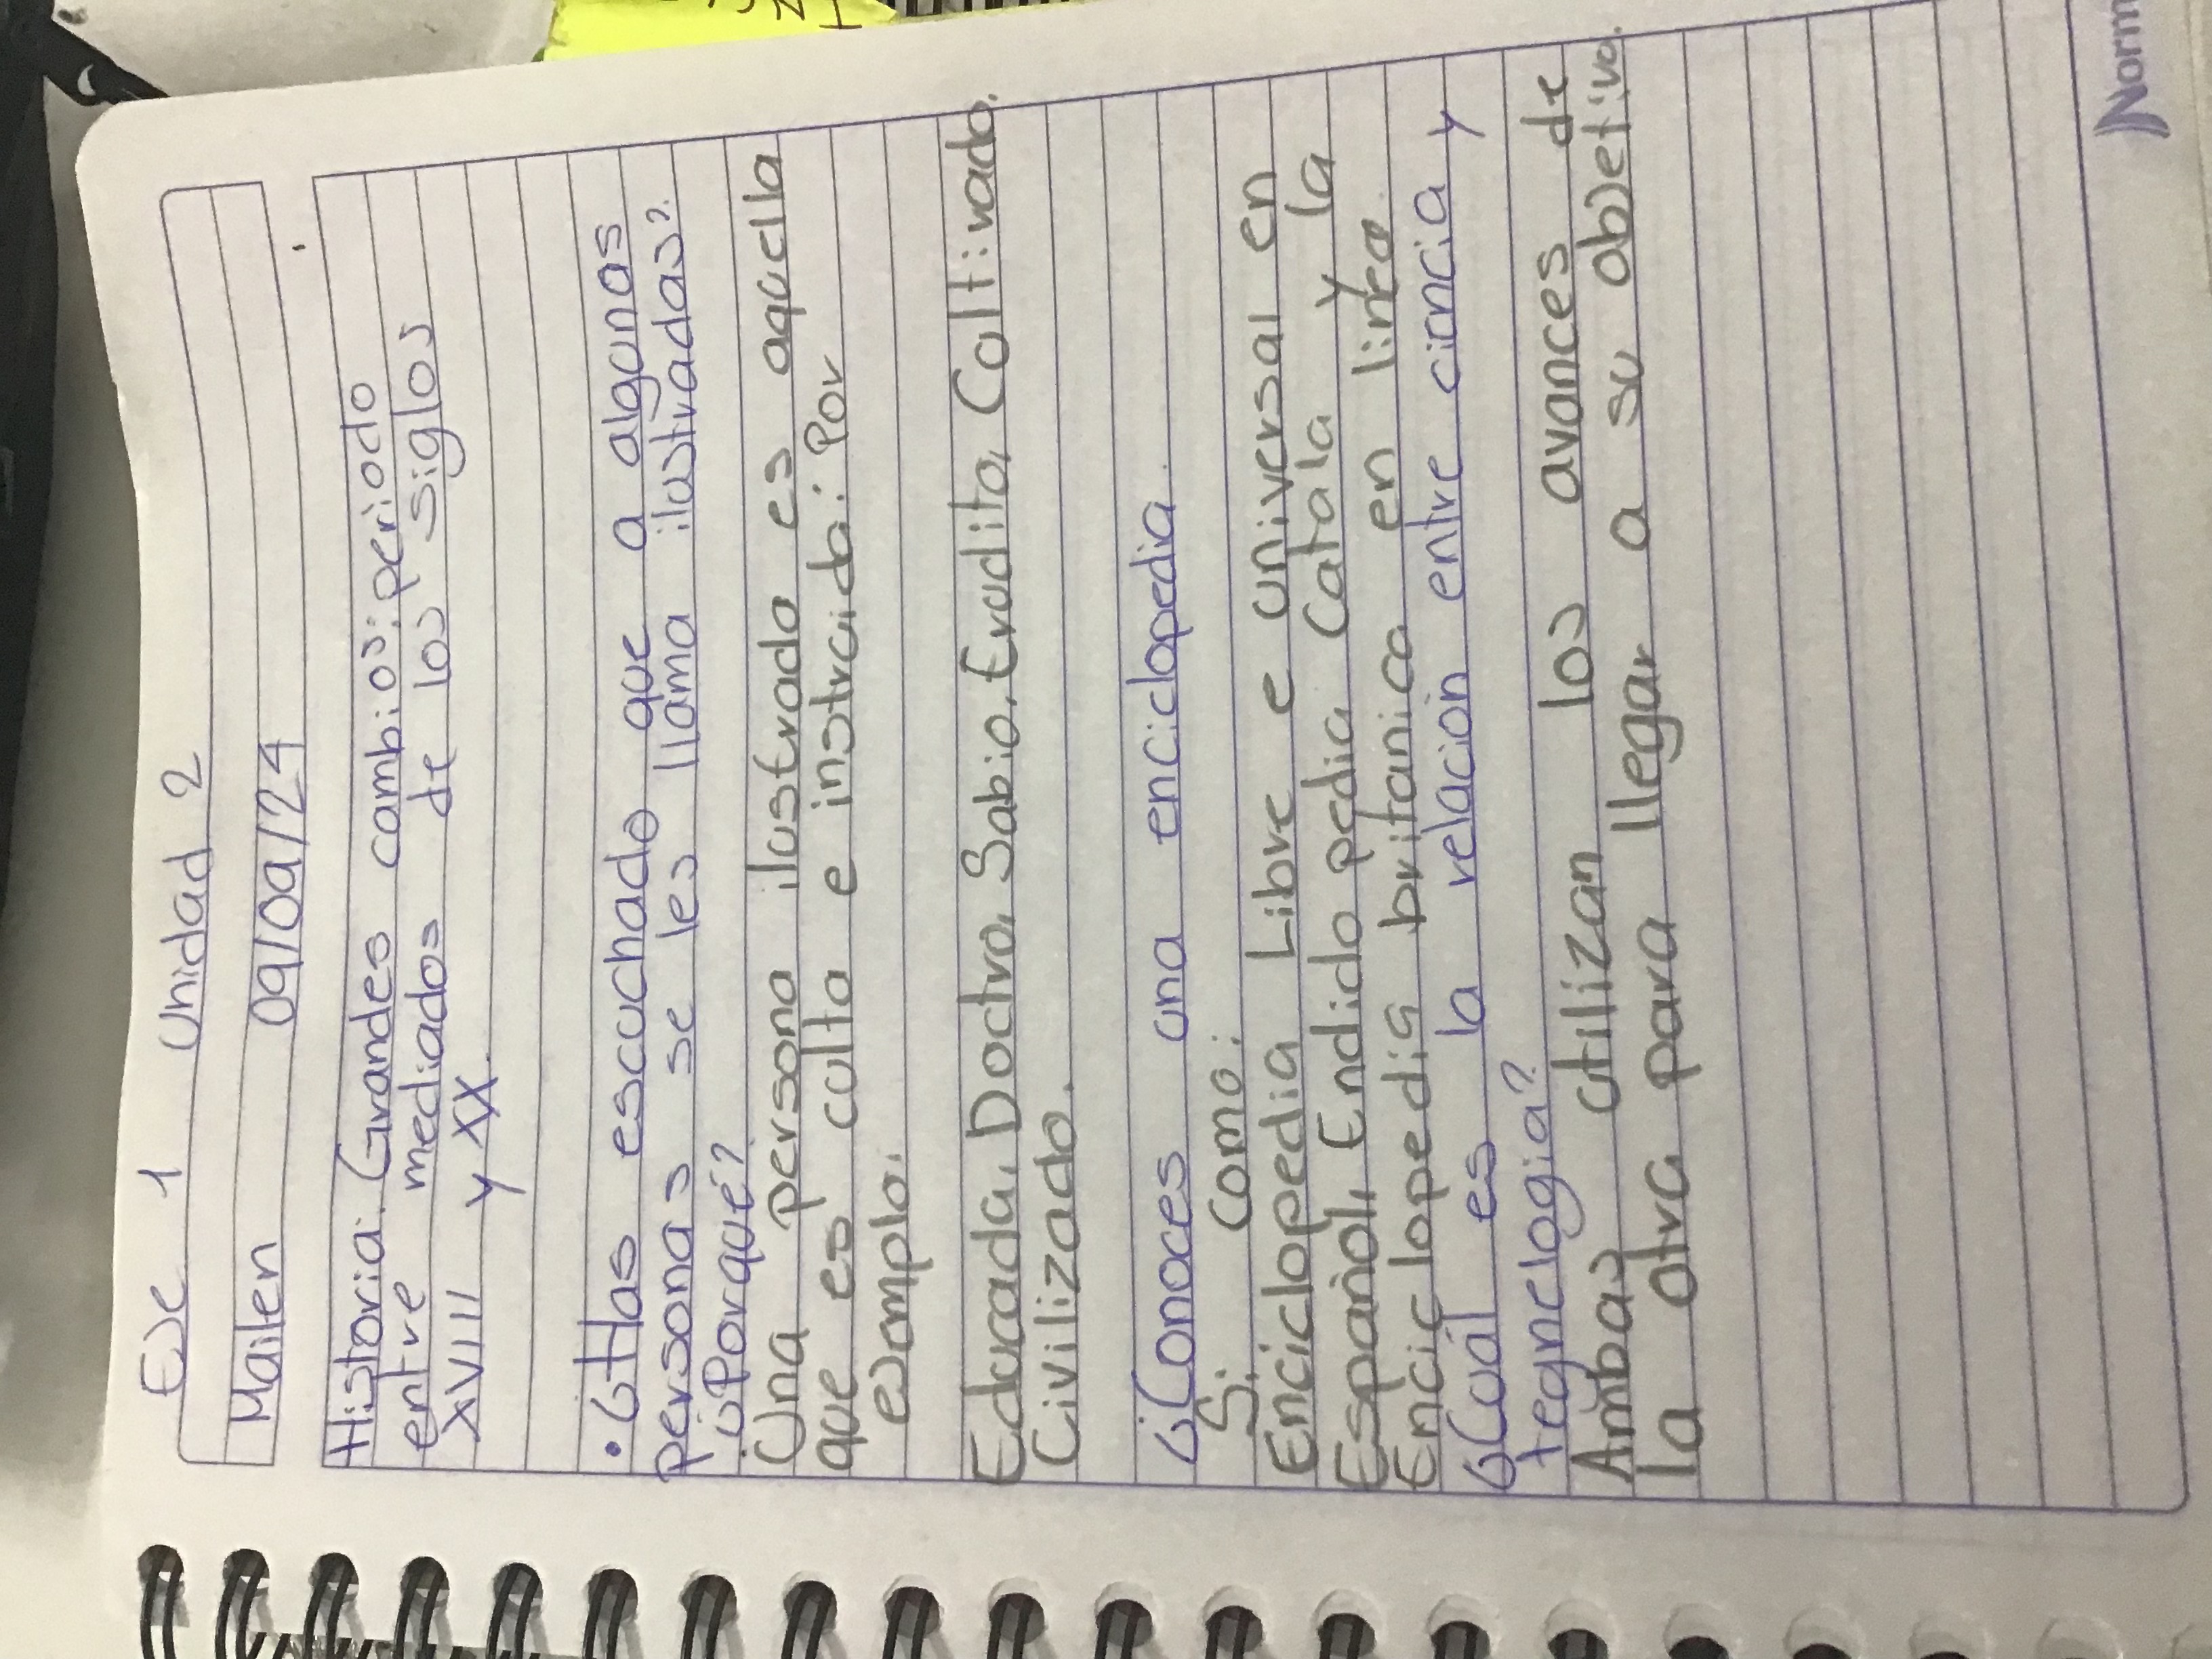 Eje 1 Unidad 2
Mailen 09/09/24
Historia. Grandes cambios: periodo
entre mediados de los siglos
XVIII y XX.
• ¿Has escuchado que a algunas
personas se les llama ilustradas?
¿Porqué?
Una persona ilustrada es aquella
que es culta e instruida: Por
ejemplo.
Educada, Doctra, Sabio, Erudita, Cultivado.
Civilizado.
¿Conoces una enciclopedia.
Si. como:
Enciclopedia Libre e universal en
Español, Endido pedia Catala y la
Enciclopedia britanica en linea.
¿Cuál es la relación entre ciencia y
tegnologia?
Ambas utilizan los avances de
la otra para llegar a su objetivo.
Norm